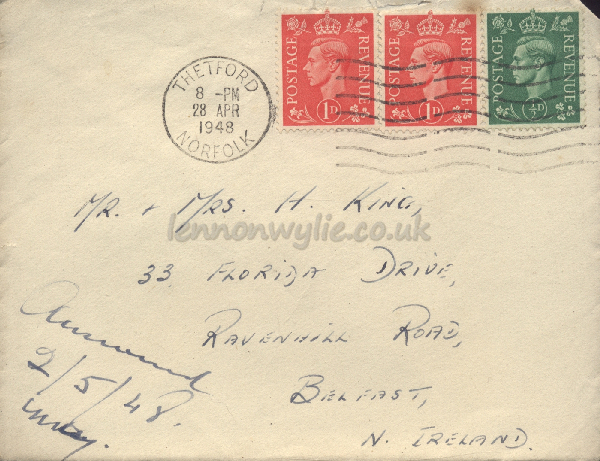 THETFORD
8 - PM
28 APR
1948
NORFOLK
POSTAGE REVENUE
1D
POSTAGE REVENUE
1D
POSTAGE REVENUE
½D
Mr. + Mrs. H. King,
lennonwylie.co.uk
33 Florida Drive,
Ravenhill Road,
Belfast,
N. Ireland.
Answered
2/5/48.